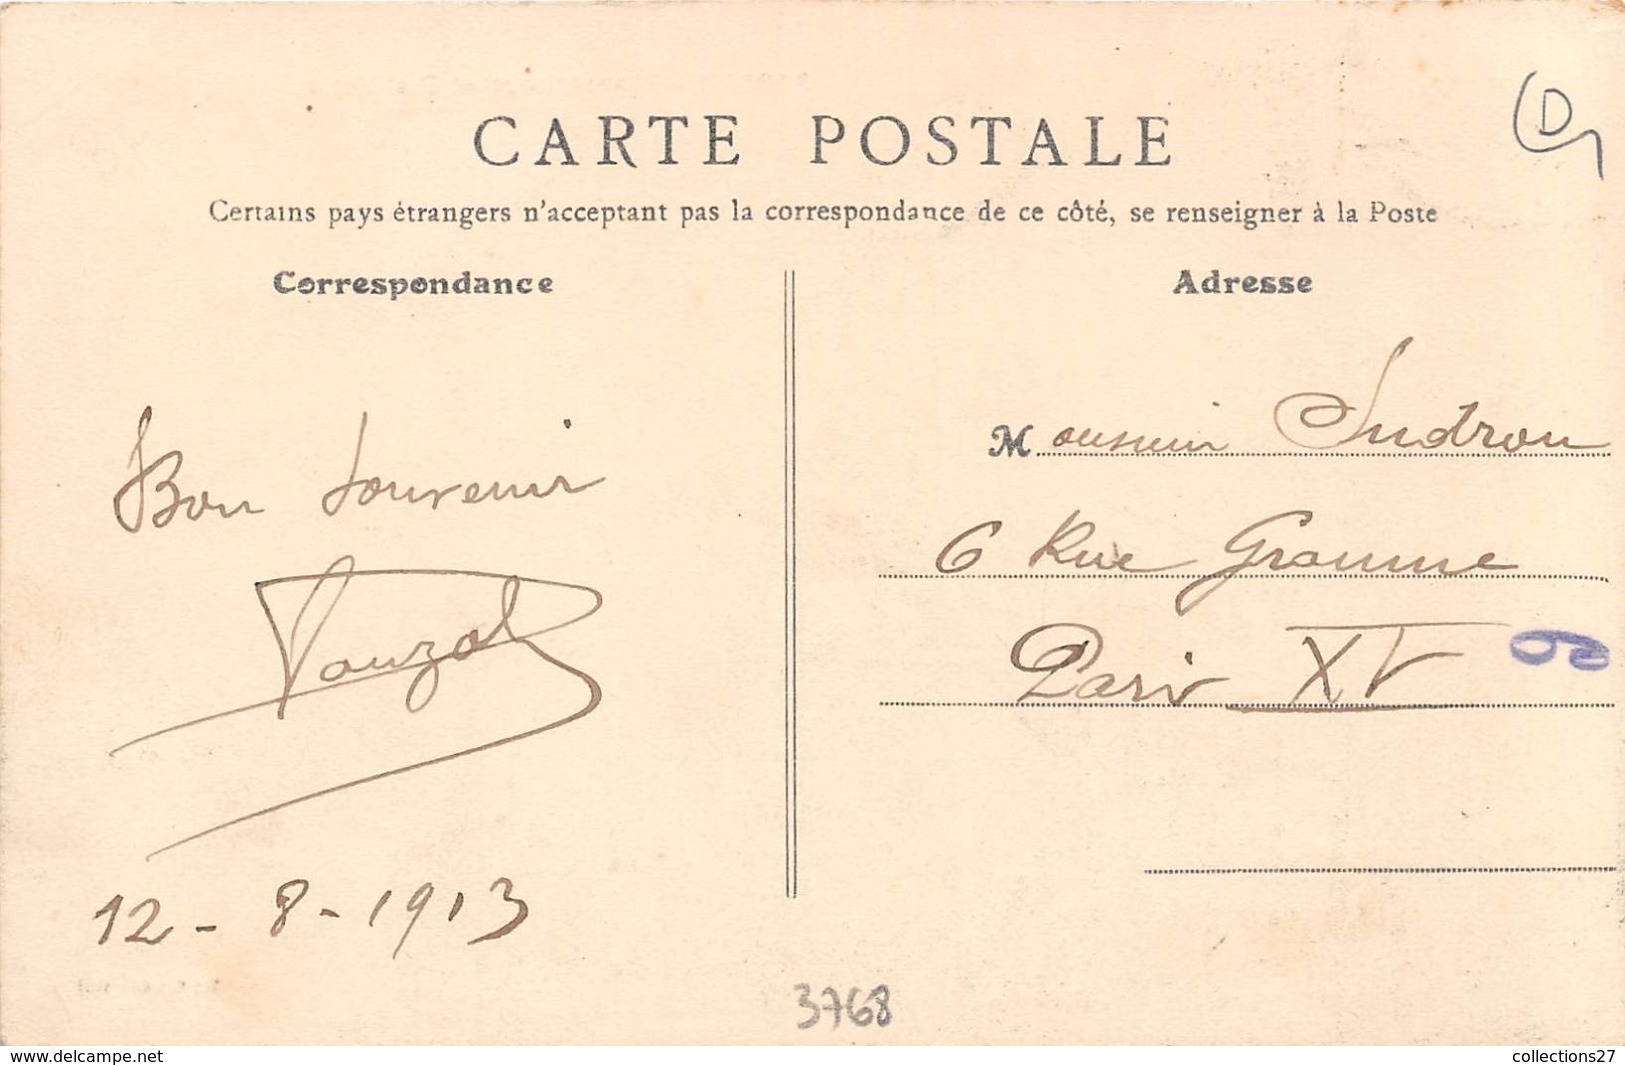 CARTE POSTALE
Certains pays étrangers n'acceptant pas la correspondance de ce côté, se renseigner à la Poste
Correspondance
Bon Souvenir
12 - 8 - 1913
Adresse
Monsieur Sudron
6 Rue Gramme
Paris XV
6
3768
www.delcampe.net
collections27